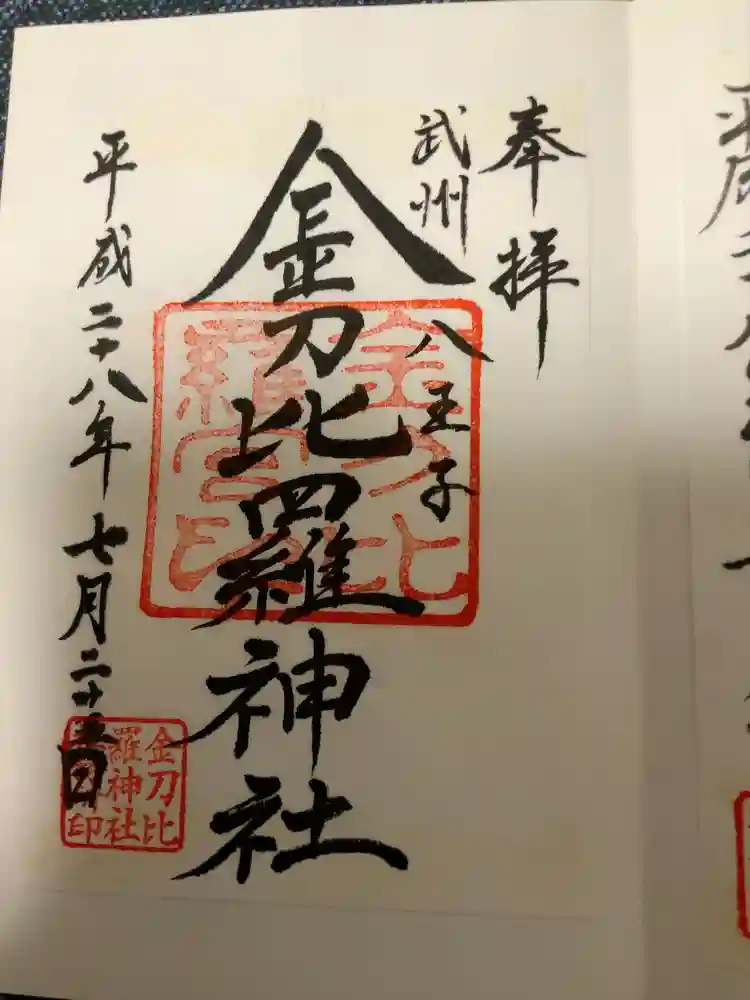 奉拝
武州 八王子
金刀比羅神社
平成二十八年七月二十五日
金刀比羅宮印
金刀比
羅神社
印